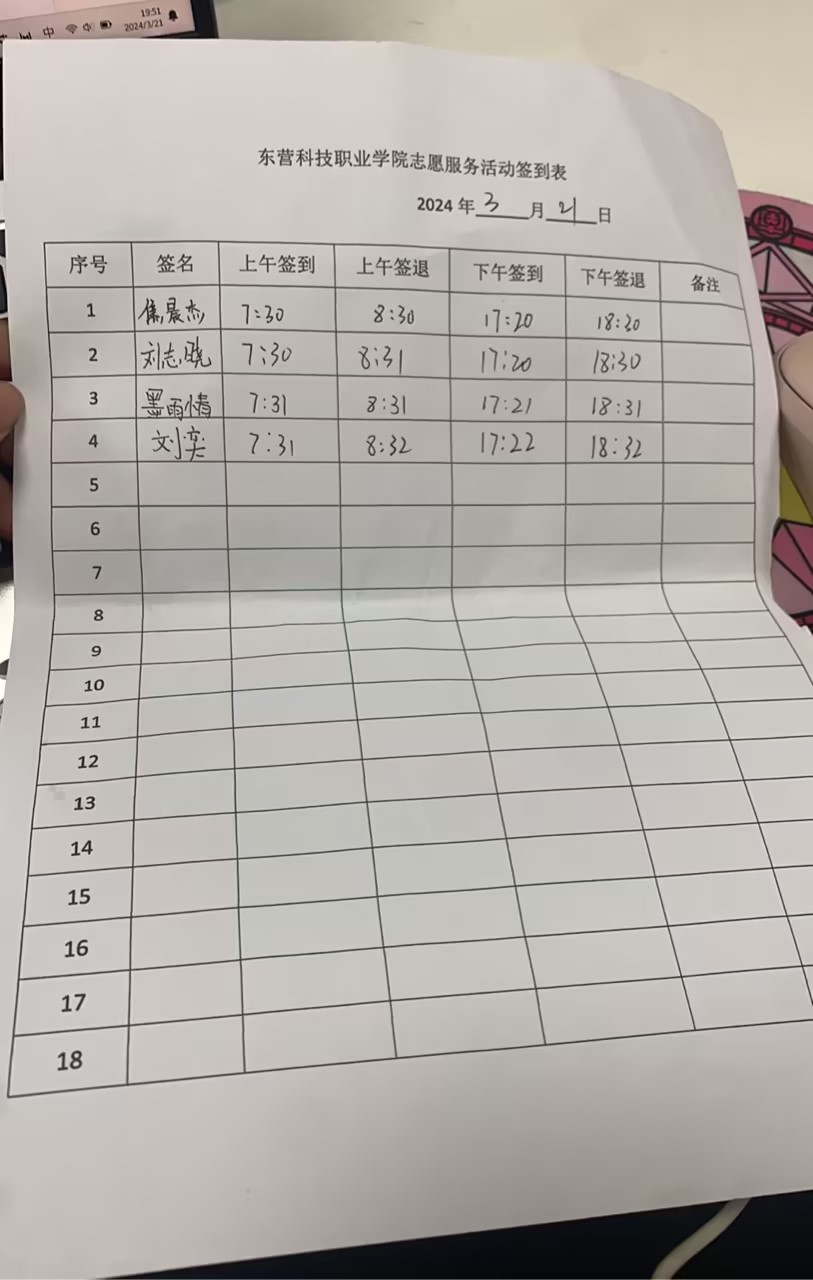 19:51
中 2024/3/21
东营科技职业学院志愿服务活动签到表
2024 年 3 月 21 日
序号 签名 上午签到 上午签退 下午签到 下午签退 备注
1 焦晨杰 7:30 8:30 17:20 18:20
2 刘志晓 7:30 8:31 17:20 18:30
3 墨雨情 7:31 8:31 17:21 18:31
4 刘奕 7:31 8:32 17:22 18:32
5
6
7
8
9
10
11
12
13
14
15
16
17
18